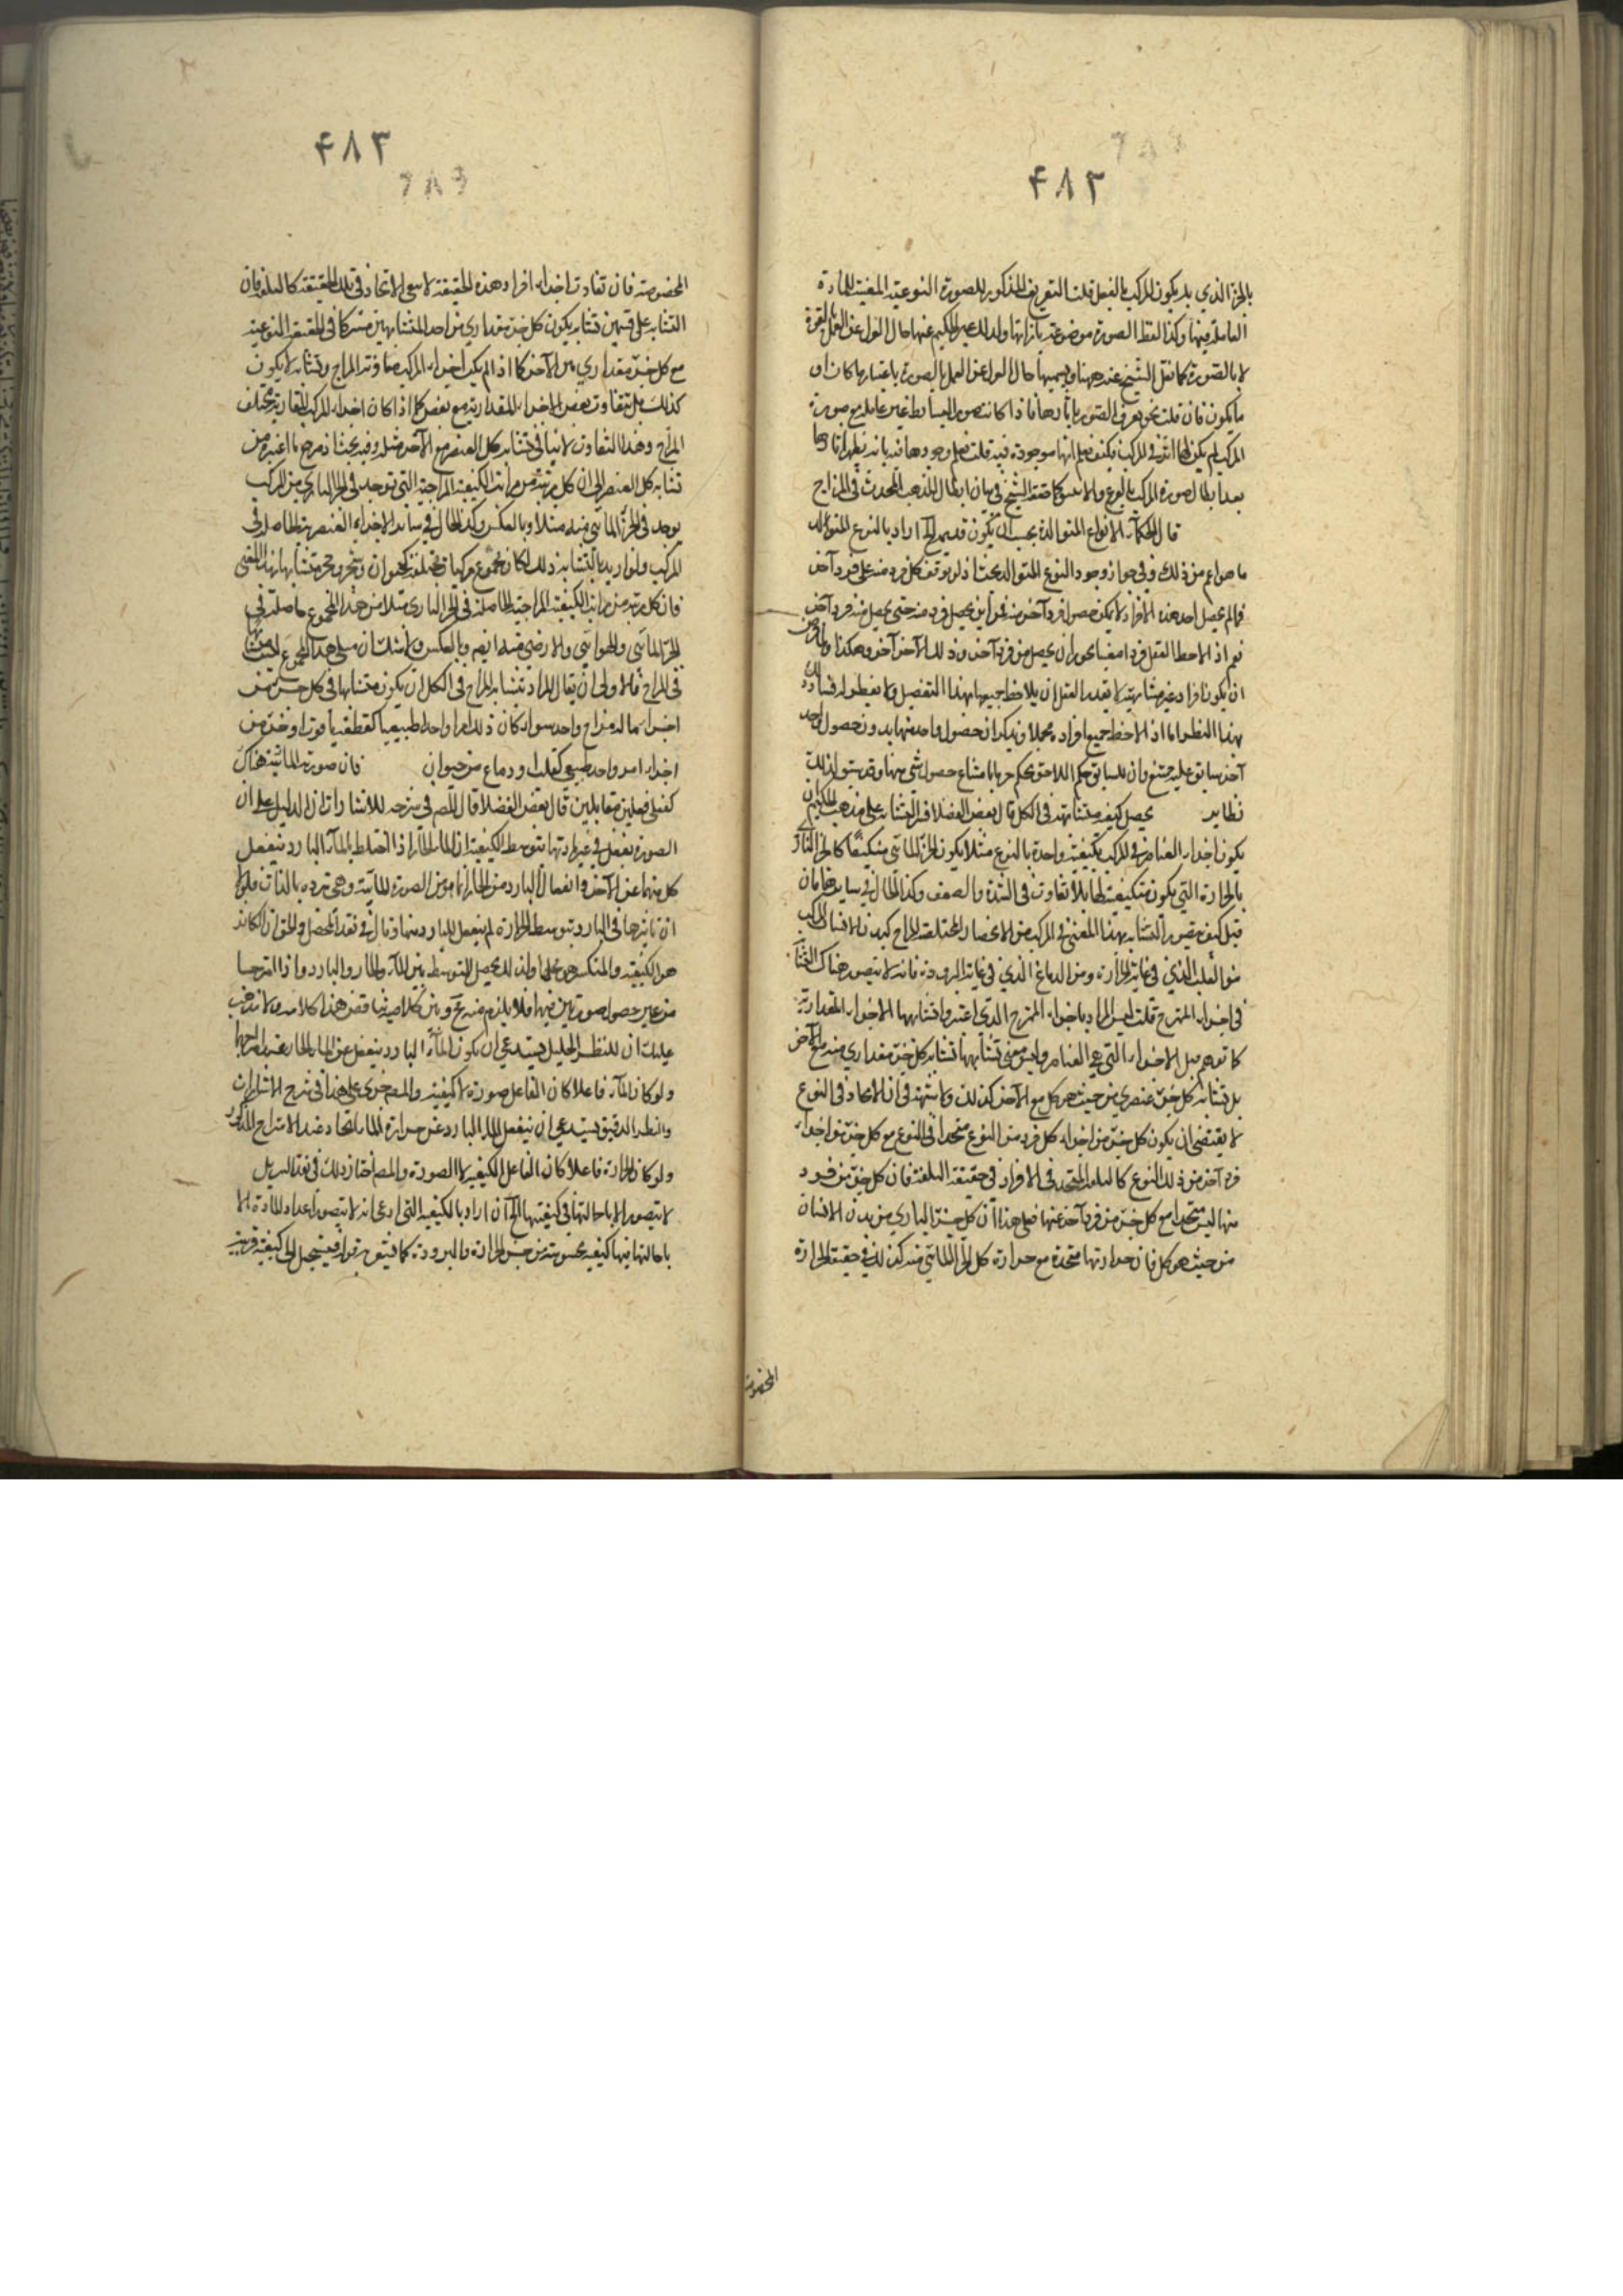 ۴۸۲
بالجزء الذي به يكون المركب بالفعل قلت التعريف المذكور للصورة النوعية المفيته للمادة
العاملة فيها وكذا لفظ الصورة موضوعة بازائها ولذلك عبر الحكيم عنها حال القول عن الفعل بالقوة
لا بالصورة كما نقل الشيخ عنه ههنا ويسميها حال القول عن العمل بالصورة باعتبارها كان او
ما يكون فان قلت نحو يعرف الصور بآثارها فاذا كانت صور البسائط غير عاملة مع صورة
المركب لم يكن لها اثر في المركب فكيف يعلم انها موجودة فيه قلت يعلم وجودها فيه بانه يظهر آثارها
بعد ابطال صورة المركب بالقرع والانبيق كما حققه الشيخ في بيان ابطال المذهب المحدث في المزاج
قال الحكماء الانواع المتوالدة يجب ان يكون قديمة الخ اراد بالنوع المتوالد
ما هو اعم من ذلك وفي جواز وجود النوع المتوالد بحث اذ لو توقف كل فرد منه على فرد آخر
فما لم يحصل احد هذه الافراد لا يمكن حصول فرد آخر منه فمن اين يحصل فرد منه حتى يحصل منه فرد آخر
نعم اذا لاحظ العقل فردا معينا يجوز ان يحصل من فرد آخر وذلك الآخر من آخر وهكذا
ان يكون افراد غير متناهية لا يقدر العقل ان يلاحظ جميعها بهذا التفصيل ولا يفطن له فساد
بهذا النظر اما اذا لاحظ جميع افراده مجملا وتذكر ان حصول واحد منها بدون حصول واحد
آخر سابق عليه ممتنع وان للسابق حكم اللاحق يحكم جزما بامتناع حصول شيء منها وقد سبق لذلك
نظاير يحصل كيفية متشابهة في الكل قال بعض الفضلاء التشابه على مذهب الحكيم ان
يكون اجزاء العناصر في المركب متكيفة بكيفية واحدة بالنوع مثلا يكون الجزء المائي متكيفا كالجزء الناري
بالحرارة التي يكون متكيفة لها بلا تفاوت في الشدة والضعف وكذا الحال في سايرها فان
قيل كيف يتصور التشابه بهذا المعنى في المركب من الاعضاء المختلفة المزاج كبدن الانسان المركب
من القلب الذي في غاية الحرارة ومن الدماغ الذي في غاية البرودة فانه لا يتصور هناك التشابه
في اجزاء الممتزج قلت ليس المراد باجزاء الممتزج الذي اعتبروا تشابهها الاجزاء المقدارية
كما توهم بل الاجزاء التي هي العناصر وليس معنى تشابهها تشابه كل جزء مقداري منه مع الآخر
بل تشابه كل جزء عنصري من حيث هو كل مع الآخر كذلك ولا شبهة في ان الاتحاد في النوع
لا يقتضي ان يكون كل جزء من اجزاء كل فرد من النوع متحدا في النوع مع كل جزء من اجزاء
فرد آخر من ذلك النوع كالبلغم المتحد في الافراد في حقيقة البلغمة فان كل جزء من فرد
منها ليس متحدا مع كل جزء من فرد آخر منها فعلى هذا ان كل جزء الناري من بدن الانسان
من حيث هو كل فان حرارتها متحدة مع حرارة كل الجزء المائي منه كذلك في حقيقة الحرارة
المخصوصة
۴۸۳
المخصوصة فان تفاوت اجزاء افراد هذه الحقيقة لا ينفي الاتحاد في تلك الحقيقة كالبلغم فان
التشابه على قسمين تشابه يكون كل جزء مقداري من احد المتشابهين مشتركا في الحقيقة النوعية
مع كل جزء مقداري من الآخر كما اذا لم يكن اجزاء المركب متفاوتة المزاج وتشابه لا يكون
كذلك بل يتفاوت بعض الاجزاء المقدارية مع بعض كما اذا كان اجزاء المركب المقدارية مختلف
المزاج وهذا التفاوت لا ينافي تشابه كل العنصر مع الآخر مثله وفيه بحث اذ مرجع ما اعتبره من
تشابه كل العنصر الى ان كل مرتبة من مراتب الكيفية المزاجية التي توجد في الجزء الناري من المركب
يوجد في الجزء المائي منه مثلا وبالعكس وكذا الحال في ساير الاجزاء العنصرية الحاصلة في
المركب ولو اريد بالتشابه ذلك لكان مجموع مركبات مختلفة كحيوان وشجر وحجر متشابها بهذا المعنى
فان كل مرتبة من مراتب الكيفية المزاجية الحاصلة في الجزء الناري مثلا من هذا المجموع حاصلة في
الجزء المائي والهوائي والارضي منه ايضا وبالعكس ولا شك ان مثل هذا المجموع ليس متشابها
في المزاج فالاولى ان يقال المراد بتشابه المزاج في الكل ان يكون متشابها في كل جزء من
اجزاء ما له مزاج واحد سواء كان ذلك امرا واحدا طبيعيا كقطعة ياقوت او جزء من
اجزاء امر واحد طبيعي كقلب او دماع من حيوان فان صورة المائية هناك
كفعلى فعلين متقابلين قال بعض الفضلاء قال المص في شرحه للاشارات ان الدليل على ان
الصورة تفعل في غير مادتها بتوسط الكيفية ان الماء الحار اذا اختلط بالماء البارد ينفعل
كل منهما عن الآخر وانفعال البارد من الحار انما هو من الصورة المائية وهي تبرده بالذات فلولا
ان تاثيرها في البارد بتوسط الحرارة لم ينفعل البارد منها وقال في نقد المحصل والحق ان الكاسر
هو الكيفية والمنكسر هو محلها ولذلك يحصل التوسط بين الماء الحار والبارد اذا امتزجا
من غير حصول صورتين فيها فلا يلزم منه ... وبين كلاميه تناقض هذا كلامه ولا يذهب
عليك ان النظر الجليل يستدعي ان يكون الماء البارد ينفعل عن الماء الحار عند امتزاجهما
ولو كان الماء فاعلا كان الفاعل صورة لا كيفية والمص جرى على هذا في شرح الاشارات
والنظر الدقيق يستدعي ان ينفعل الماء البارد عن حرارة الماء الحار عند الامتزاج المذكور
ولو كان الحرارة فاعلا كان الفاعل الكيفية لا الصورة والمص اختار ذلك في نقد التنزيل
لا يتصور الا باحالتها في كيفيتها الخ ان اراد بالكيفية التي ادعى انه لا يتصور اعداد المادة الا
باحالتها فيها كيفية محسوسة من جنس الحرارة والبرودة كما يشعر به قوله فيستحيل الى كيفية قريبة